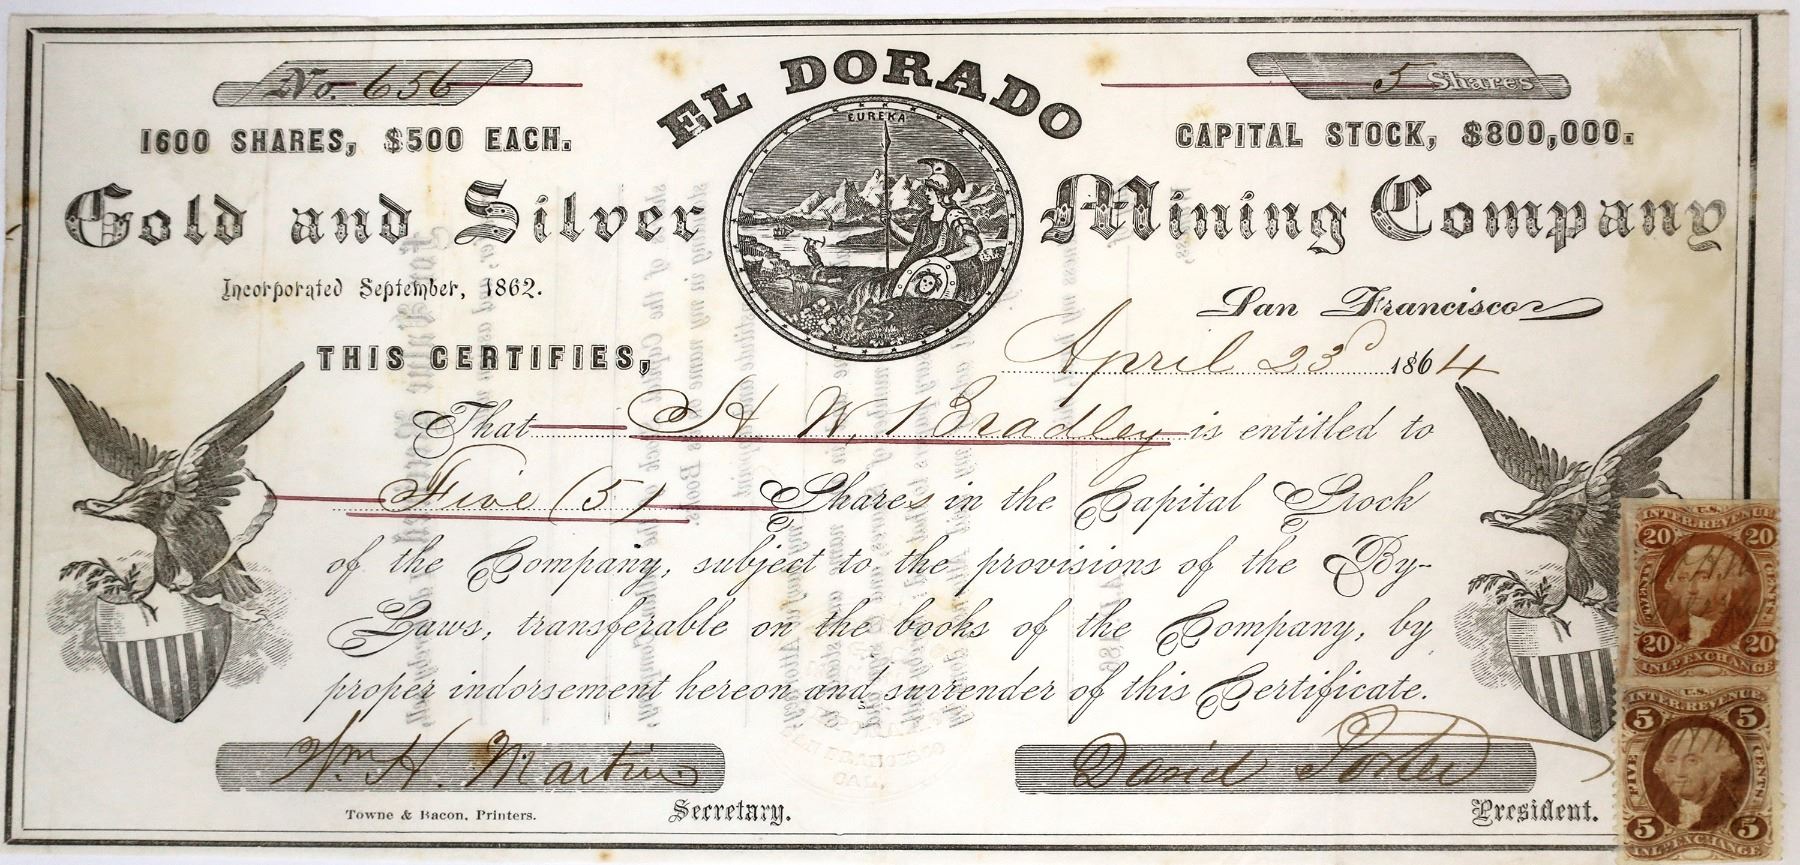 No. 656
EL DORADO
5 Shares
1600 SHARES, $500 EACH.
EUREKA
CAPITAL STOCK, $800,000.
Gold and Silver Mining Company
Incorporated September, 1862.
San Francisco
April 23d 1864
THIS CERTIFIES,
That H. W. Bradley is entitled to
Five (5) Shares in the Capital Stock
of the Company, subject to the provisions of the By-
Laws, transferable on the books of the Company, by
proper indorsement hereon and surrender of this Certificate.
Wm H. Martin
David Porter
Towne & Bacon, Printers.
Secretary.
President.
SAN FRANCISCO
CAL.
U.S.
INTER. REVENUE
20 20
TWENTY CENTS
20 20
INL. EXCHANGE
U.S.
INTER. REVENUE
5 5
FIVE CENTS
5 5
INL. EXCHANGE